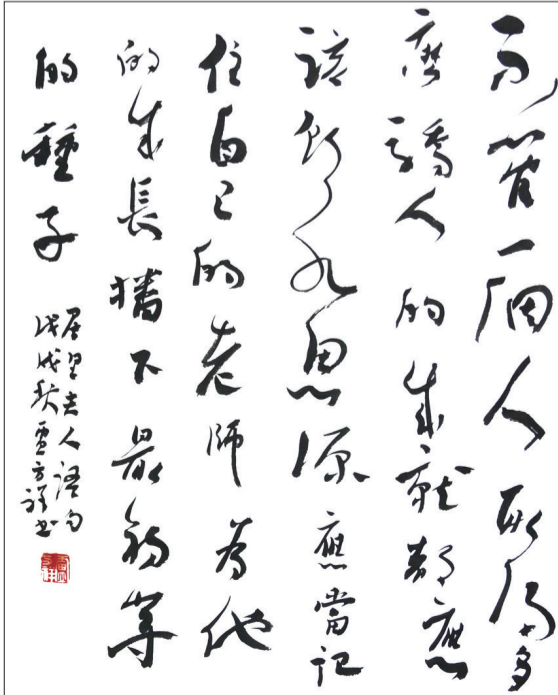 不管一個人取得多
麼驕人的成就都應
該飲水思源應當記
住自己的老師為他
的成長播下最初
的種子
居里夫人語句
戊戌秋 書